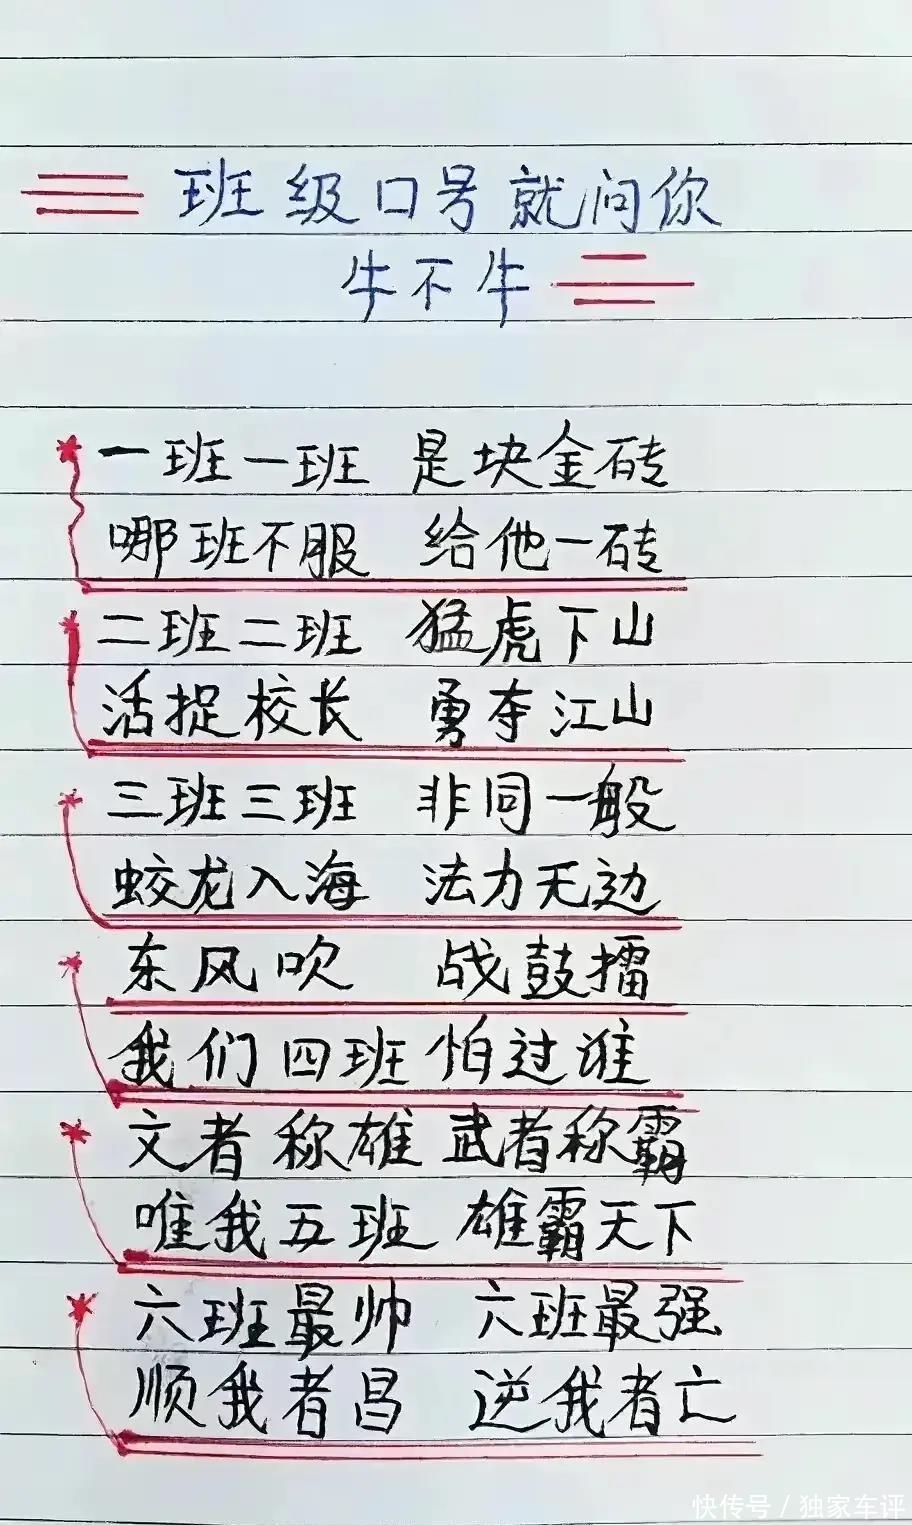 班级口号就问你
牛不牛
一班一班 是块金砖
哪班不服 给他一砖
二班二班 猛虎下山
活捉校长 勇夺江山
三班三班 非同一般
蛟龙入海 法力无边
东风吹 战鼓擂
我们四班怕过谁
文者称雄 武者称霸
唯我五班 雄霸天下
六班最帅 六班最强
顺我者昌 逆我者亡
快传号 / 独家车评